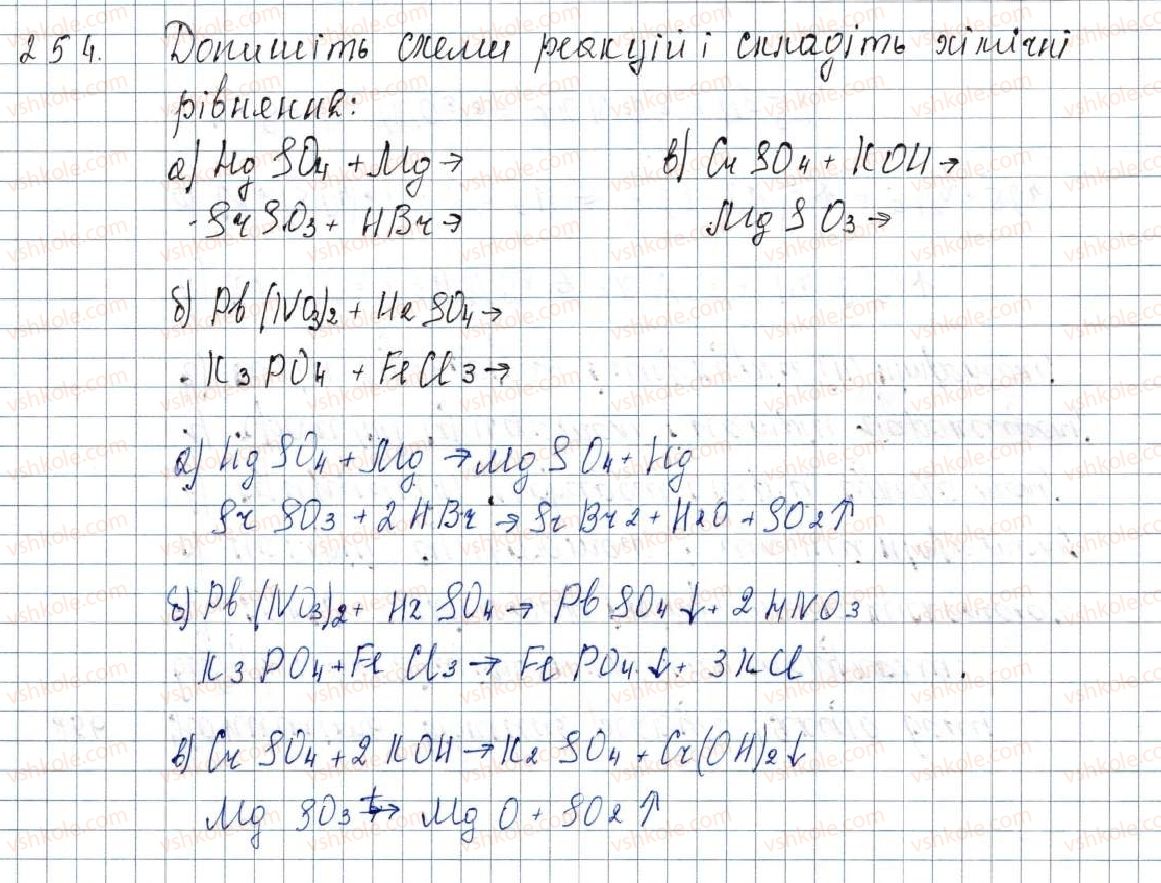 254. Допишіть схеми реакцій і складіть хімічні
рівняння:
а) HgSO4 + Mg →
SrSO3 + HBr →
в) CrSO4 + KOH →
MgSO3 →
б) Pb(NO3)2 + H2SO4 →
K3PO4 + FeCl3 →
а) HgSO4 + Mg → MgSO4 + Hg
SrSO3 + 2HBr → SrBr2 + H2O + SO2↑
б) Pb(NO3)2 + H2SO4 → PbSO4↓ + 2HNO3
K3PO4 + FeCl3 → FePO4↓ + 3KCl
в) CrSO4 + 2KOH → K2SO4 + Cr(OH)2↓
MgSO3 t→ MgO + SO2↑
vshkole.com